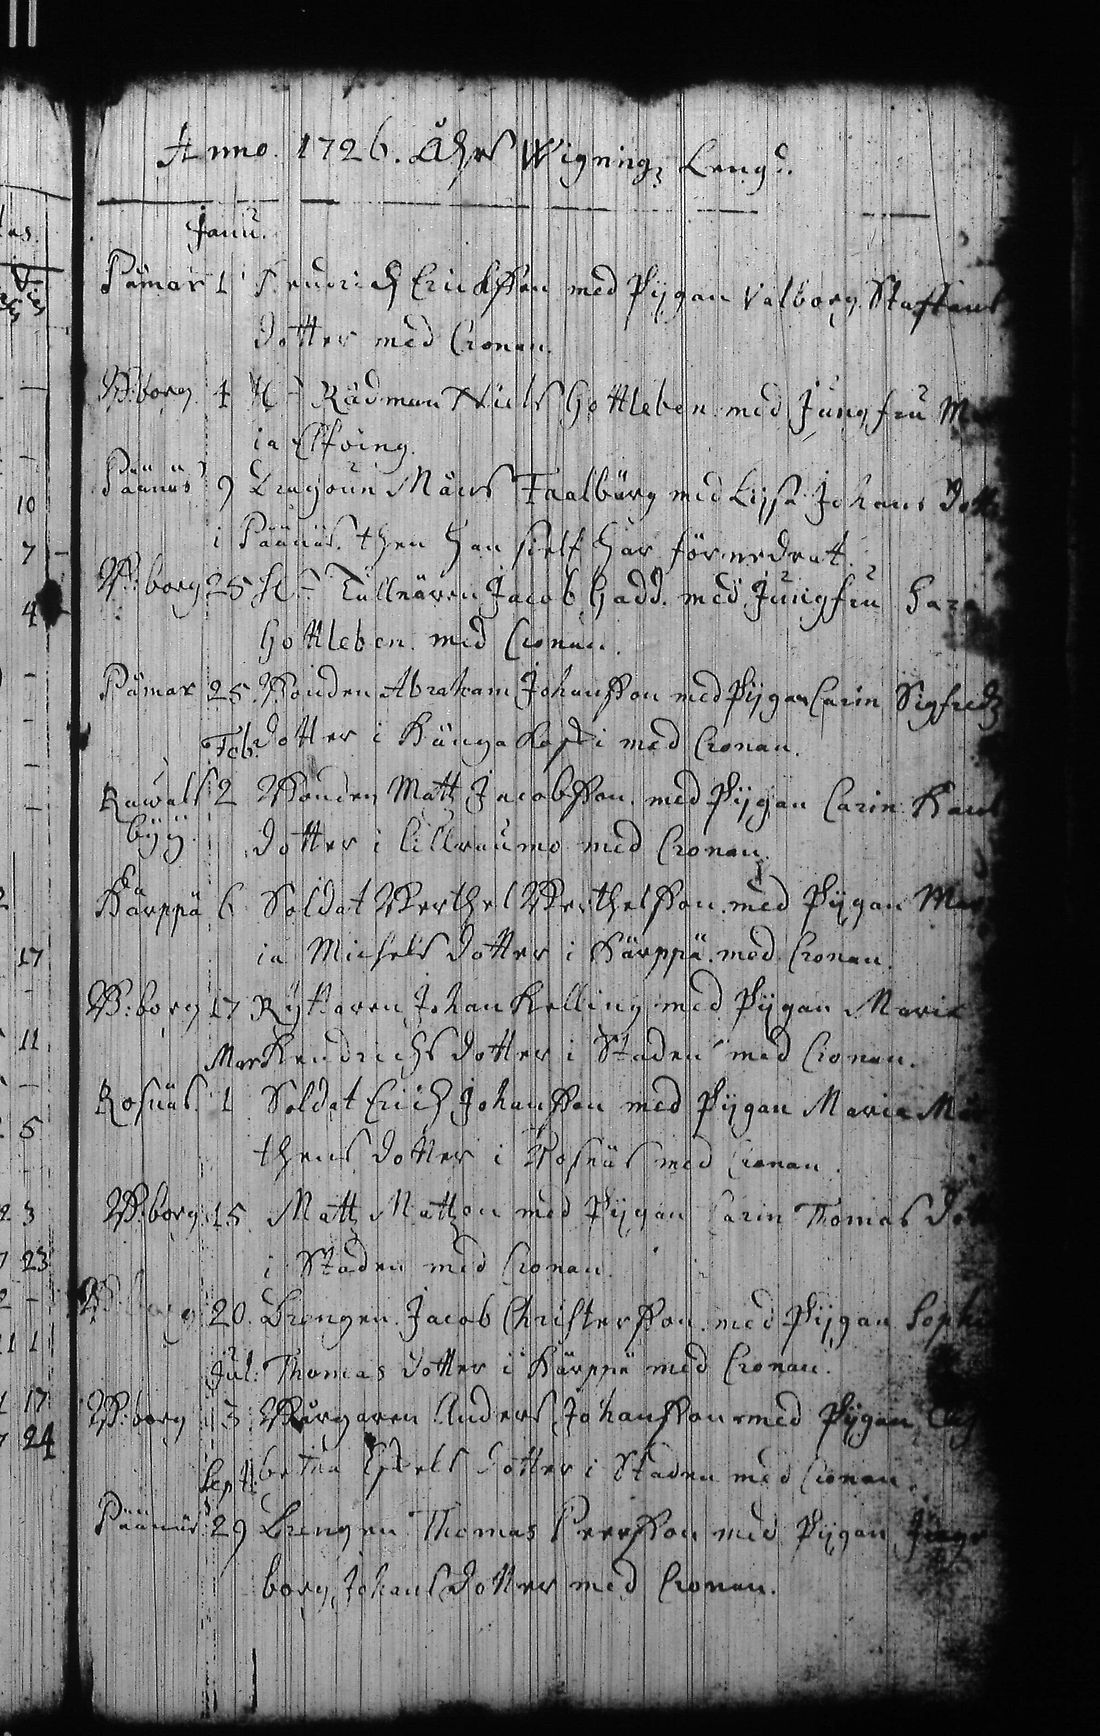 Anno. 1726. Åhrs Wignings Lengd.
Janu.
Pämar 1 Hendrich Erichsson med Pijgan Valborg Staffans
dotter med Cronan.
W:borg 4 H. Rådman Niels Gottleben med Jungfru Ma
ia Elfving.
Päänäs 9 Dragoun Måns Faalburg med Lijsa Johans dotter
i Päänäs. then han sielf har förnedrat.
W:borg 25 H. Tullnären Jacob Gadd. med Jungfru Sara
Gottleben. med Cronan.
Pämar 25 Bonden Abraham Johansson med Pijgan Carin Sigfreds
Feb. dotter i Kangakoski med Cronan.
Rawals 2 Bonden Matts Jacobsson. med Pijgan Carin
byy. dotter i Lillraumo med Cronan.
Kärppä 6 Soldat Berthel Berthelsson. med Pijgan Mar
ia Michels dotter i Kärppä. med Cronan.
W:borg 17 Ryttaren Johan Kelling med Pijgan Maria
Mar Hendrichs dotter i Staden med Cronan.
Rosnäs. 1 Soldat Erich Johansson med Pijgan Maria Mår
thens dotter i Rosnäs med Cronan.
W:borg 15 Matts Matsson med Pijgan Carin Thomas dot
i Staden med Cronan.
20. Drengen Jacob Christersson. med Pijgan Sophia
Jul: Thomas dotter i Kärppä med Cronan.
W:borg 3 Borgaren Anders Johansson med Pijgan
Sept: betha dotter i Staden med Cronan.
Päänäs 29 Drengen Thomas Peersson med Pijgan Inge
borg Johans dotter med Cronan.